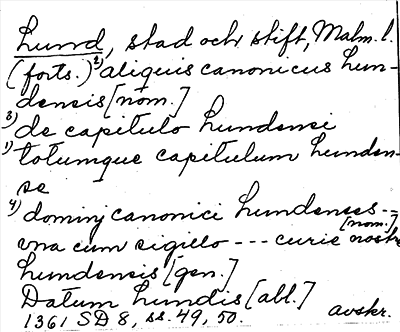 Lund, stad och stift, Malm. l.
(forts.) 2) aliquis canonicus lun-
densis [nom.]
3) de capitulo lundensi
1) totumque capitulum lunden-
se
4) dominj canonici lundenses --
vna cum sigillo --- curie nostre
[nom.]
lundensis [gen.]
Datum lundis [abl.]
1361 SD 8, ss. 49, 50. avskr.